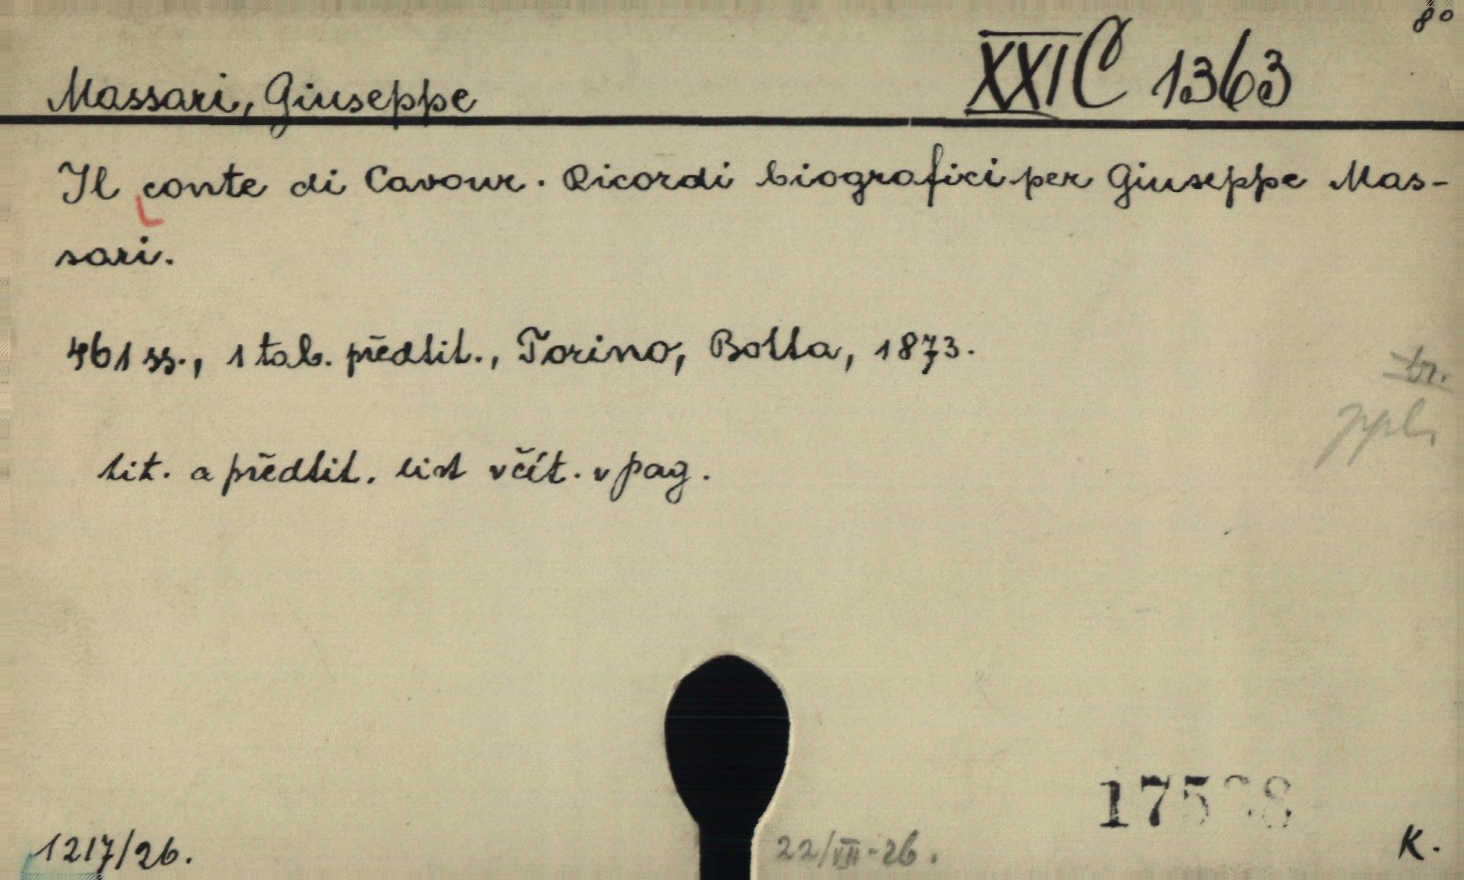 8°
XXI C 1363
Massari, Giuseppe
Il conte di Cavour. Ricordi biografici per Giuseppe Mas-
sari.
461 ss., 1 tab. předtit., Torino, Botta, 1873.
tr.
ppl.
tit. a předtit. list včít. v pag.
1217/26.
22/VII-26.
K.